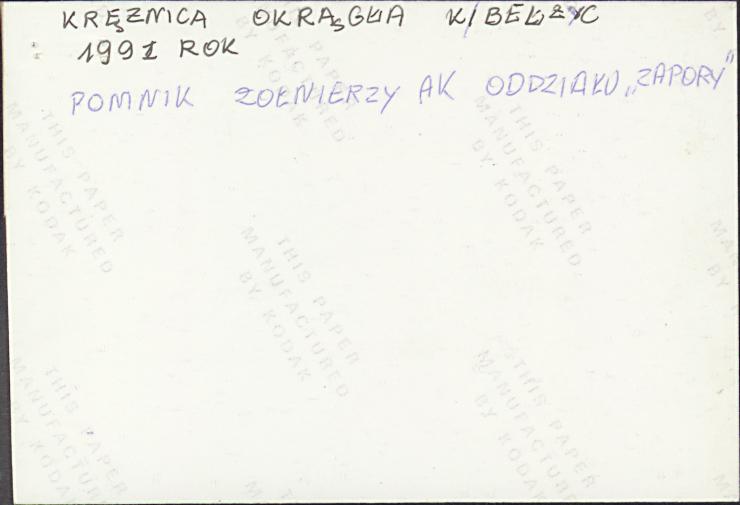 KRĘZNICA OKRĄGŁA K/BEŁŻYC
1991 ROK
POMNIK ŻOŁNIERZY AK ODDZIAŁU „ZAPORY”
THIS PAPER
MANUFACTURED
BY KODAK
THIS PAPER
MANUFACTURED
BY KODAK
THIS PAPER
MANUFACTURED
BY KODAK
THIS PAPER
MANUFACTURED
BY KODAK
THIS PAPER
MANUFACTURED
BY KODAK
THIS PAPER
MANUFACTURED
BY KODAK